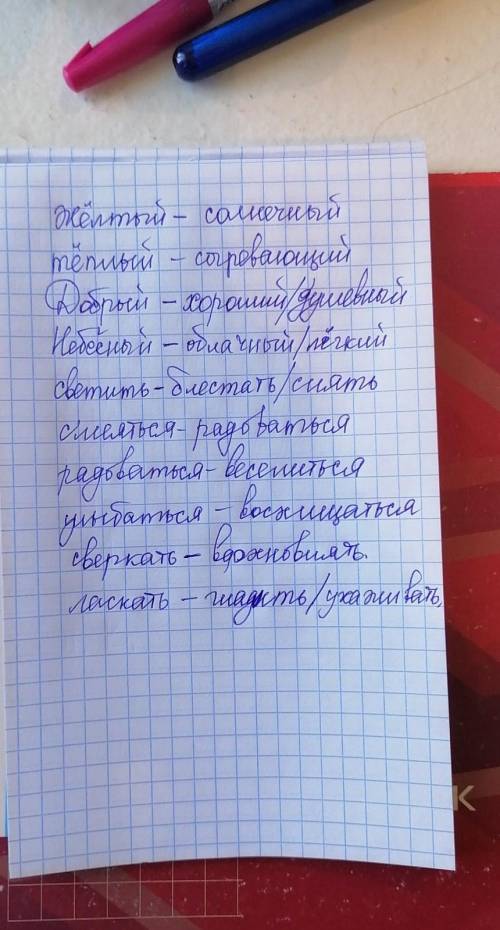 жёлтый - солнечный
тёплый - сыгревающий
Добрый - хороший/душевный
Небесный - облачный/лёгкий
светить - блестать/сиять
смеяться - радоваться
радоваться - веселиться
улыбаться - восхищаться
сверкать - вдохновлять.
ласкать - гладить/ухаживать,
К